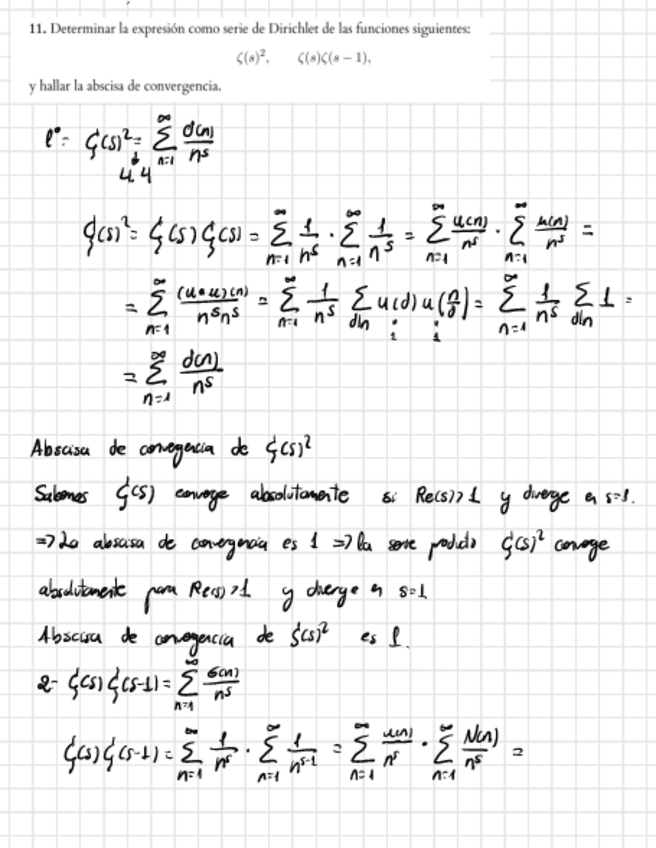 11. Determinar la expresión como serie de Dirichlet de las funciones siguientes:
ζ(s)², ζ(s)ζ(s − 1),
y hallar la abscisa de convergencia.
1º- ζ(s)² = ∑_{n=1}^∞ d(n)/n^s
u·u
ζ(s)² = ζ(s) ζ(s) = ∑_{n=1}^∞ 1/n^s · ∑_{n=1}^∞ 1/n^s = ∑_{n=1}^∞ u(n)/n^s · ∑_{n=1}^∞ u(n)/n^s =
= ∑_{n=1}^∞ (u*u)(n)/n^s n^s = ∑_{n=1}^∞ 1/n^s ∑_{d|n} u(d) u(n/d) = ∑_{n=1}^∞ 1/n^s ∑_{d|n} 1 =
1 1
= ∑_{n=1}^∞ d(n)/n^s
Abscisa de convergencia de ζ(s)²
Sabemos ζ(s) converge absolutamente si Re(s)>1 y diverge en s=1.
=> La abscisa de convergencia es 1 => la serie producto ζ(s)² converge
absolutamente para Re(s)>1 y diverge en s=1
Abscisa de convergencia de ζ(s)² es 1.
2- ζ(s) ζ(s-1) = ∑_{n=1}^∞ σ(n)/n^s
ζ(s) ζ(s-1) = ∑_{n=1}^∞ 1/n^s · ∑_{n=1}^∞ 1/n^{s-1} = ∑_{n=1}^∞ u(n)/n^s · ∑_{n=1}^∞ N(n)/n^s =